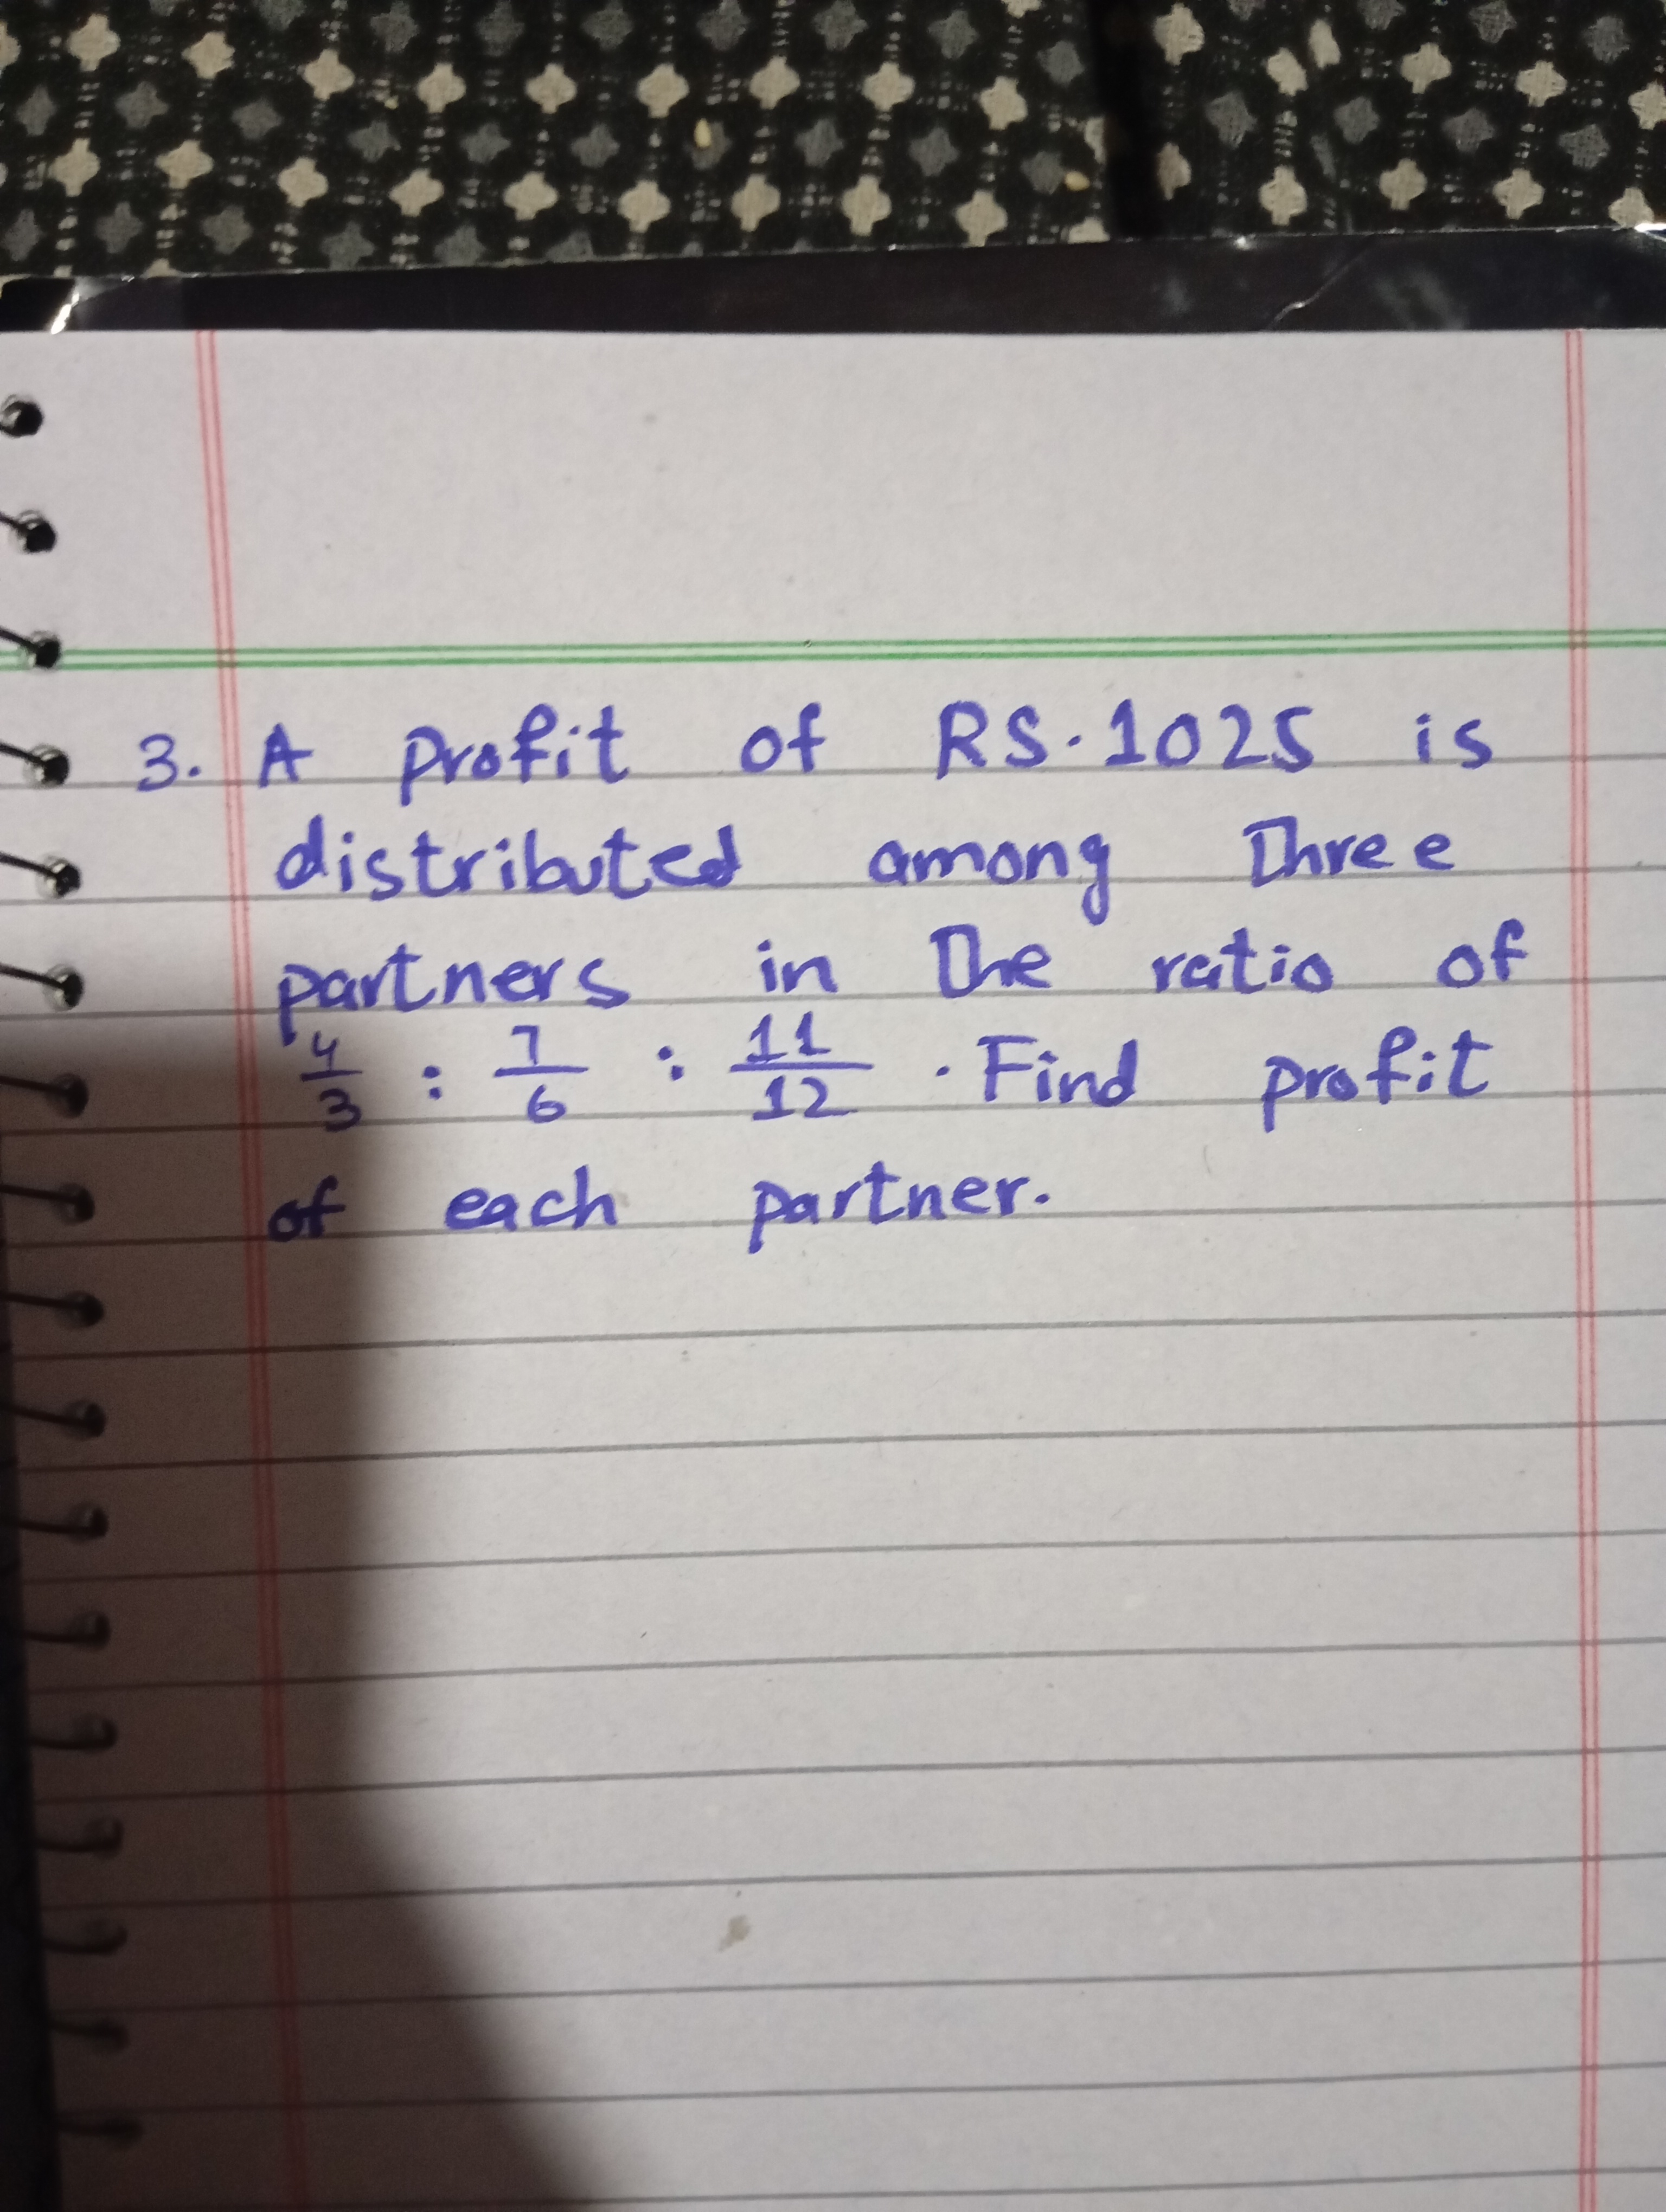 3. A profit of RS.1025 is
distributed among three
partners in the ratio of
4/3 : 7/6 : 11/12 . Find profit
of each partner.